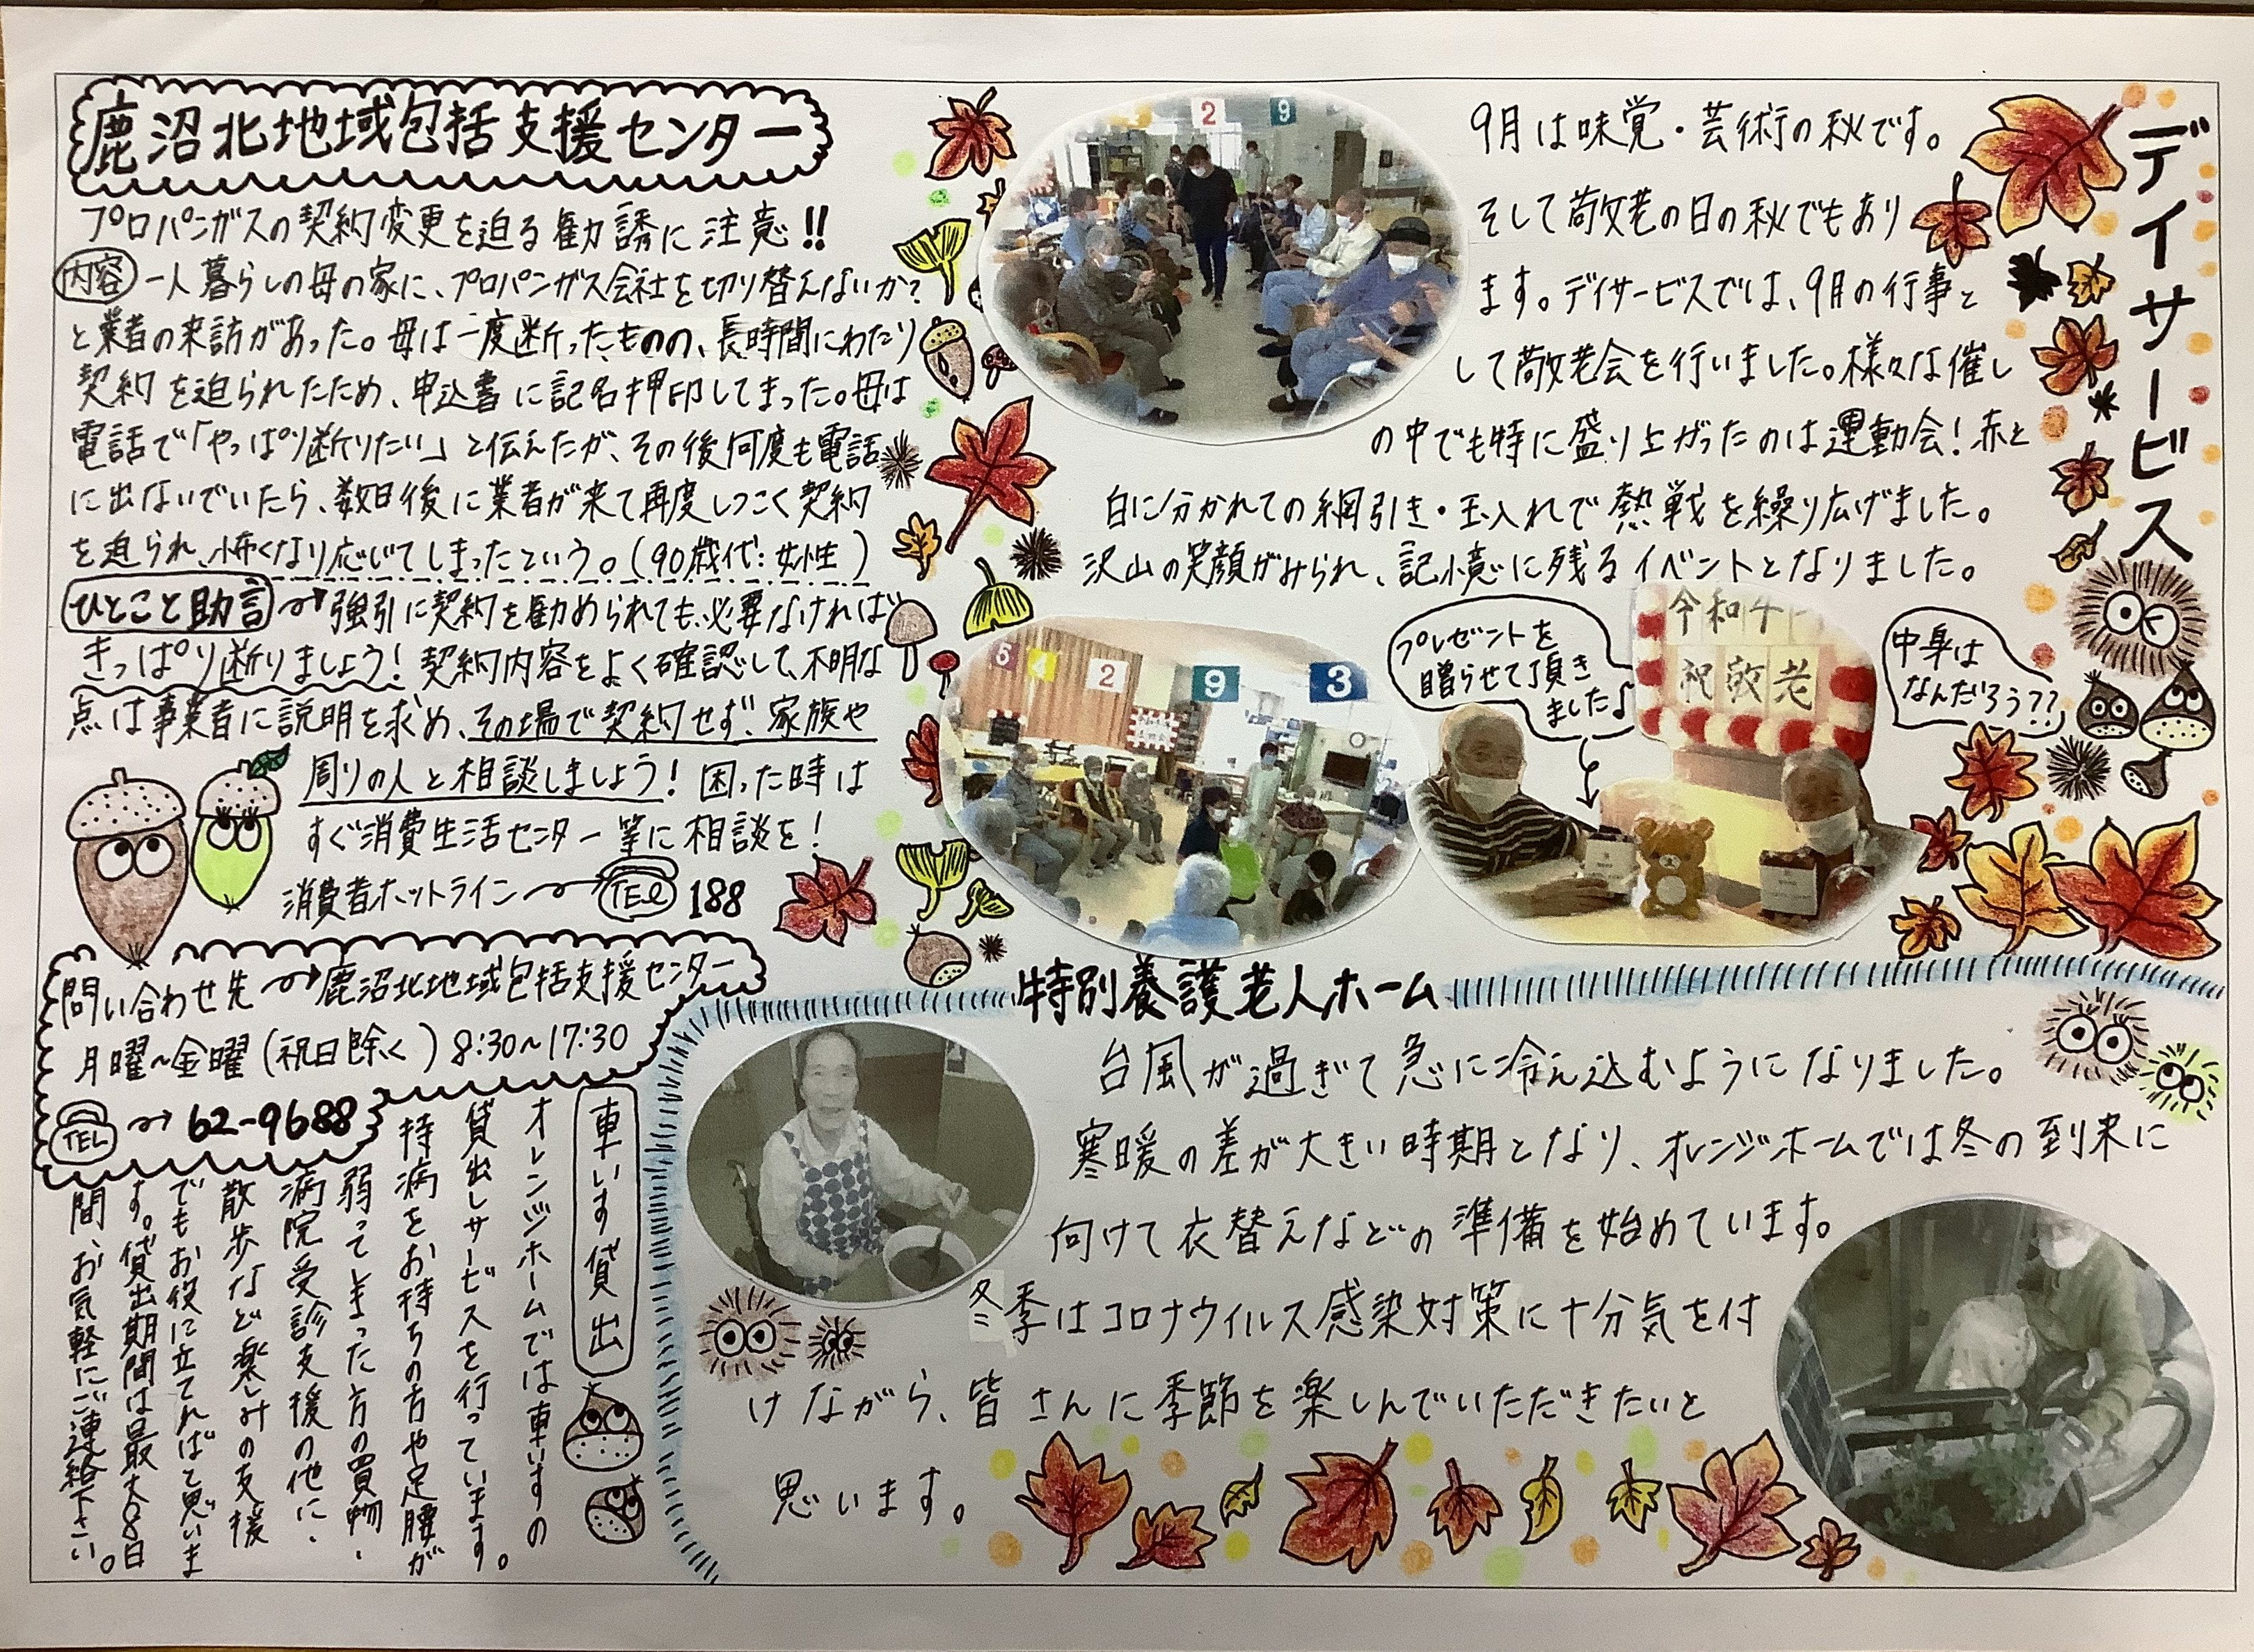 鹿沼北地域包括支援センター
プロパンガスの契約変更を迫る勧誘に注意!!
内容 一人暮らしの母の家に、プロパンガス会社を切り替えないか?
と業者の来訪があった。母は一度断ったものの、長時間にわたり
契約を迫られたため、申込書に記名押印してしまった。母は
電話で「やっぱり断りたい」と伝えたが、その後何度も電話
に出ないでいたら、数日後に業者が来て再度しつこく契約
を迫られ、怖くなり応じてしまったという。(90歳代:女性)
ひとこと助言→強引に契約を勧められても、必要なければ
きっぱり断りましょう!契約内容をよく確認して、不明な
点は事業者に説明を求め、その場で契約せず、家族や
周りの人と相談しましょう!困った時は
すぐ消費生活センター等に相談を!
消費者ホットライン→TEL 188
問い合わせ先→鹿沼北地域包括支援センター
月曜~金曜(祝日除く)8:30~17:30
TEL→62-9688
車いす貸出
オレンジホームでは車いすの
貸出しサービスを行っています。
持病をお持ちの方や足腰が
弱ってしまった方の買物・
病院受診支援の他に、
散歩など楽しみの支援
でもお役に立てればと思いま
す。貸出期間は最大8日
間、お気軽にご連絡下さい。
デイサービス
9月は味覚・芸術の秋です。
そして敬老の日の秋でもあり
ます。デイサービスでは、9月の行事と
して敬老会を行いました。様々な催し
の中でも特に盛り上がったのは運動会!赤と
白に分かれての綱引き・玉入れで熱戦を繰り広げました。
沢山の笑顔がみられ、記憶に残るイベントとなりました。
2 9
5 4 2 9 3
プレゼントを
贈らせて頂き
ました♪
令和4
祝敬老
中身は
なんだろう??
特別養護老人ホーム
台風が過ぎて急に冷え込むようになりました。
寒暖の差が大きい時期となり、オレンジホームでは冬の到来に
向けて衣替えなどの準備を始めています。
冬季はコロナウイルス感染対策に十分気を付
けながら、皆さんに季節を楽しんでいただきたいと
思います。